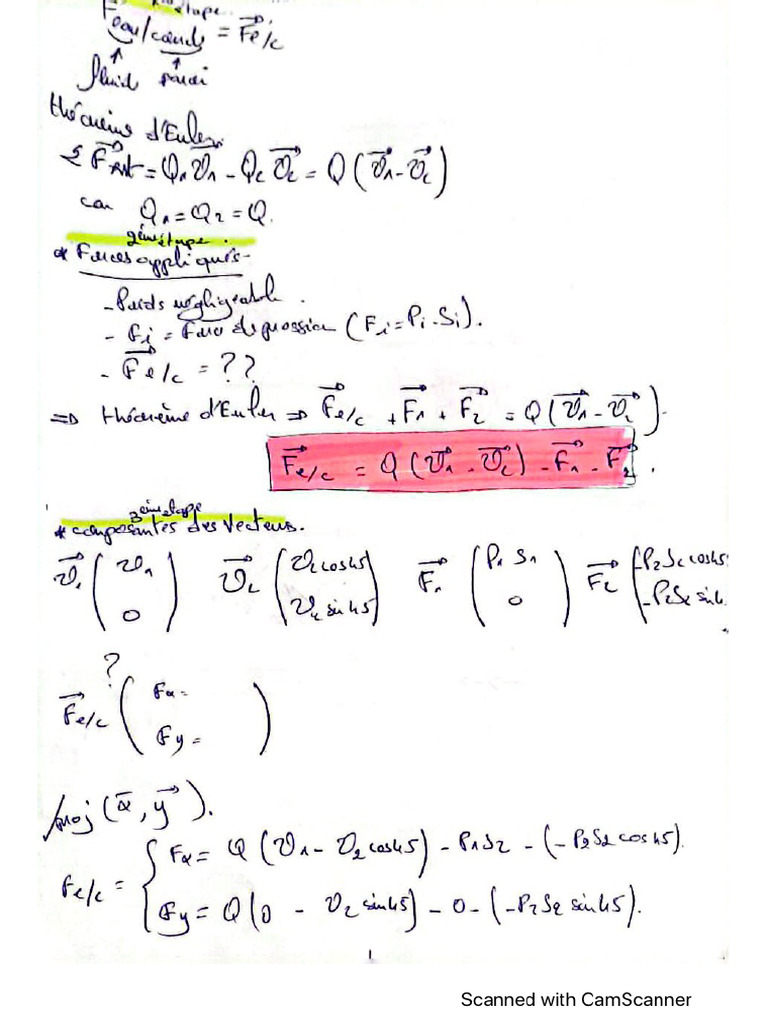 étape.
F⃗eau/coude = F⃗e/c
fluid paroi
théorème d'Euler
Σ F⃗ext = Q₁ V⃗₁ - Q₂ V⃗₂ = Q (V⃗₁ - V⃗₂)
car Q₁ = Q₂ = Q.
2ème étape.
* Forces appliqués.
- Poids négligeable.
- Fi = Force de pression (Fi = Pi . Si).
- F⃗e/c = ??
=> théorème d'Euler => F⃗e/c + F⃗₁ + F⃗₂ = Q (V⃗₁ - V⃗₂).
F⃗e/c = Q (V⃗₁ - V⃗₂) - F⃗₁ - F⃗₂.
3ème étape
* composantes des Vecteurs.
V⃗₁ (V₁ V⃗₂ (V₂ cos45 F⃗₁ (P₁ S₁ F⃗₂ (-P₂S₂ cos45
0) V₂ sin45) 0) -P₂S₂ sin4
?
F⃗e/c (Fx =
Fy = )
proj (x⃗, y⃗).
Fe/c = { Fx = Q (V₁ - V₂ cos45) - P₁S₂ - (-P₂S₂ cos45).
Fy = Q (0 - V₂ sin45) - 0 - (-P₂S₂ sin45).
1
Scanned with CamScanner